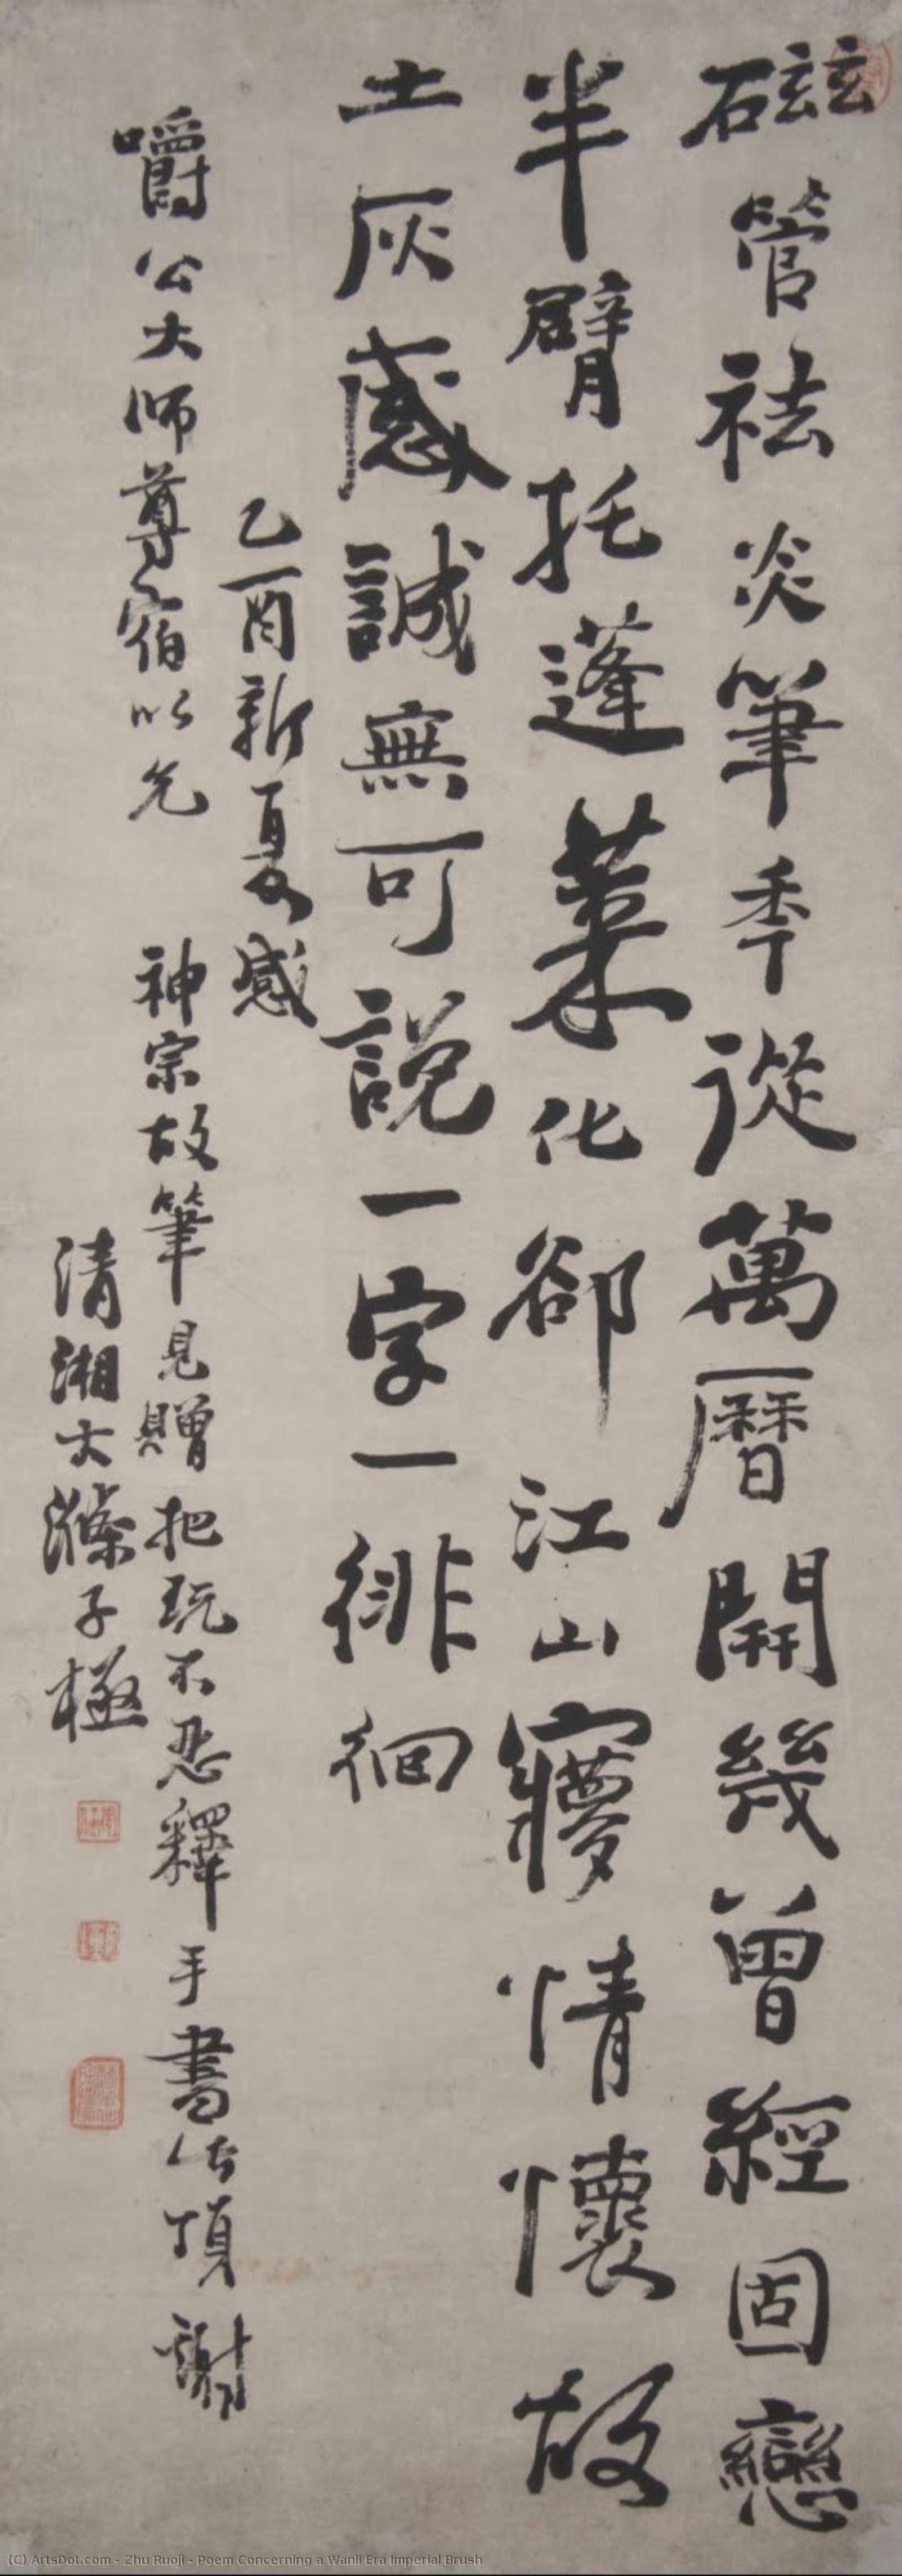 磁管祛炎筆季從萬曆開幾曾經固戀
半臂托蓬萊化卻江山寤情懷故
土灰感誠無可說一字一徘徊
乙酉新夏感
嚼公大師尊宿以先 神宗故筆見贈把玩不忍釋手書此頂謝
清湘大滌子極
(C) ArtsDot.com - Zhu Ruoji - Poem Concerning a Wanli Era Imperial Brush